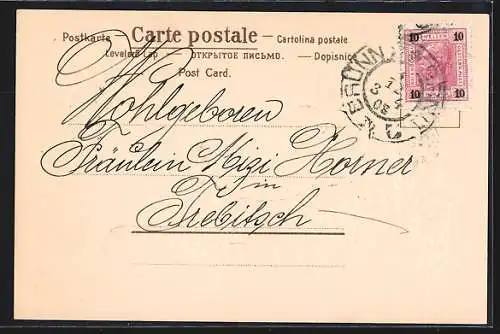 Postkarte Carte postale Cartolina postale
Levelező Lap — ОТКРЫТОЕ ПИСЬМО. — Dopisnice
Post Card.
10 10
10 10
BRÜNN
Wohlgeboren
Fräulein Mizi Horner
in
Trebitsch